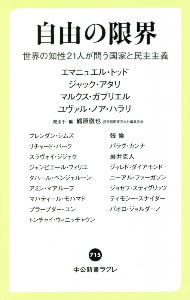 自由の限界
世界の知性21人が問う国家と民主主義
エマニュエル・トッド
ジャック・アタリ
マルクス・ガブリエル
ユヴァル・ノア・ハラリ
聞き手・編 鶴原徹也
ブレンダン・シムズ
リチャード・バーク
スラヴォイ・ジジェク
ジャンピエール・フィリユ
タハール・ベンジェルーン
アミン・マアルーフ
マハティール・モハマド
プラープダー・ユン
トンチャイ・ウィニッチャクン
張 倫
パラグ・カンナ
岩井克人
ジャレド・ダイアモンド
ニーアル・ファーガソン
ジョセフ・スティグリッツ
ティモシー・スナイダー
パオロ・ジョルダーノ
715
中公新書ラクレ